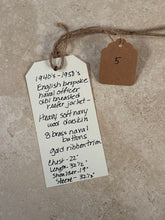 1940's - 1950's
English bespoke
naval officer
dbl breasted
reefer jacket -
Heavy soft navy
wool doeskin
8 brass naval
buttons
gold ribbon trim
Chest - 22"
Length - 32 1/2"
Shoulder - 19"
Sleeve - 32 1/2"
5